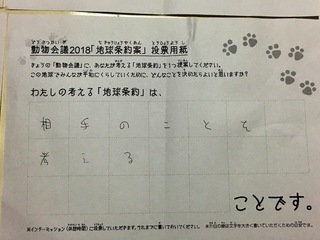 動物会議2018「地球条約案」投票用紙
きょうの「動物会議」に、あなたが考える「地球条約」を1つ提案してください。
この地球でみんなが平和にくらしていくために、どんなことを決めたらよいと思いますか?
わたしの考える「地球条約」は、
相手のことを
考える
ことです。
※インターミッション(休憩時間)に投票していただきます。それまでに書いておいてください。